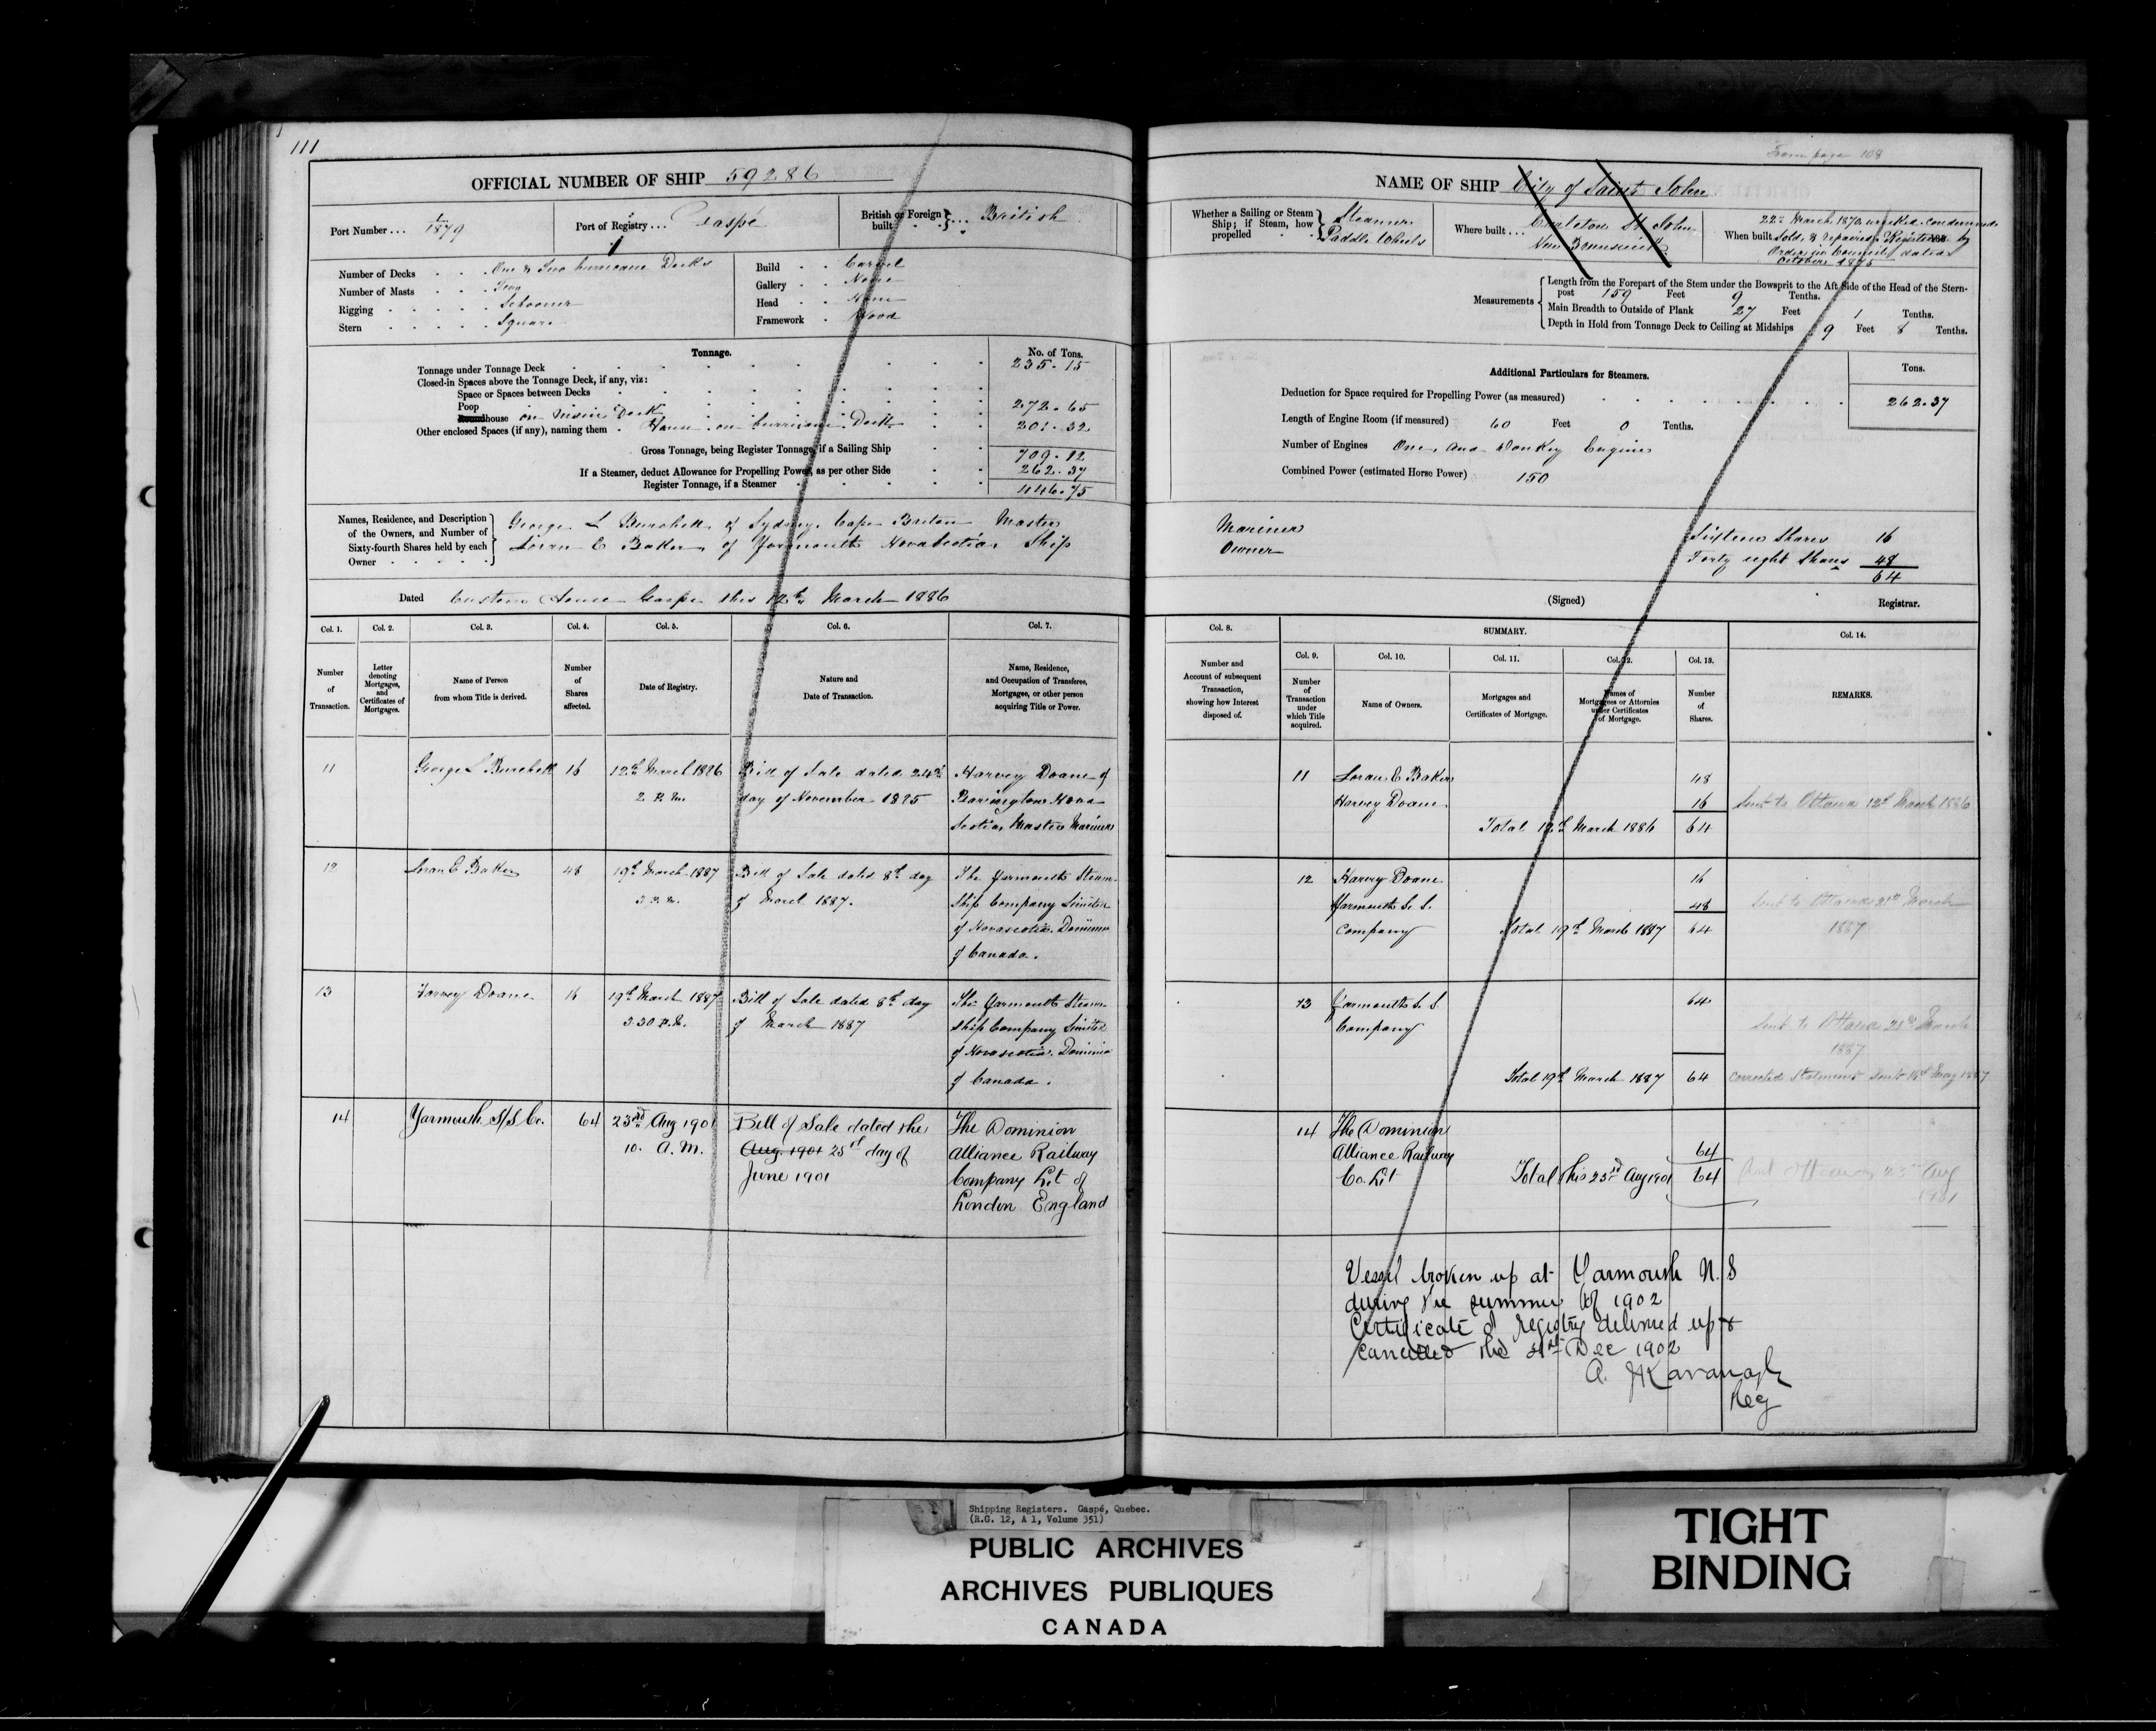 111
From page 108
OFFICIAL NUMBER OF SHIP 59286
NAME OF SHIP City of Saint John
Port Number ... 1/1879
Port of Registry ... Gaspé
British or Foreign built ... British
Whether a Sailing or Steam Ship; if Steam, how propelled Steamer Paddle Wheels
Where built ... Carleton St. John New Brunswick
When built
22nd March 1870 wrecked condemned
Sold & repaired Registered by
Order in Council dated
October 1875
Number of Decks One & Two hurricane Decks
Number of Masts Two
Rigging Schooner
Stern Square
Build Carvel
Gallery None
Head None
Framework Wood
Measurements
Length from the Forepart of the Stem under the Bowsprit to the Aft Side of the Head of the Stern-
post 159 Feet 9 Tenths.
Main Breadth to Outside of Plank 27 Feet 1 Tenths.
Depth in Hold from Tonnage Deck to Ceiling at Midships 9 Feet 8 Tenths.
Tonnage. No. of Tons.
Tonnage under Tonnage Deck 235.15
Closed-in Spaces above the Tonnage Deck, if any, viz:
Space or Spaces between Decks
Poop 272.65
Roundhouse on Main Deck
Other enclosed Spaces (if any), naming them House on hurricane Deck 201.32
Gross Tonnage, being Register Tonnage, if a Sailing Ship 709.12
If a Steamer, deduct Allowance for Propelling Power, as per other Side 262.37
Register Tonnage, if a Steamer 446.75
Additional Particulars for Steamers. Tons.
Deduction for Space required for Propelling Power (as measured) 262.37
Length of Engine Room (if measured) 60 Feet 0 Tenths.
Number of Engines One and Donkey Engine
Combined Power (estimated Horse Power) 150
Names, Residence, and Description
of the Owners, and Number of
Sixty-fourth Shares held by each
Owner
George L Burchell of Sydney, Cape Breton Master Mariner Sixteen Shares 16
Loran E Baker of Yarmouth Nova Scotia Ship Owner Forty eight Shares 48
64
Dated Custom House Gaspe this 12th March 1886
(Signed) Registrar.
Col. 1. Number of Transaction.
Col. 2. Letter denoting Mortgages, and Certificates of Mortgages.
Col. 3. Name of Person from whom Title is derived.
Col. 4. Number of Shares affected.
Col. 5. Date of Registry.
Col. 6. Nature and Date of Transaction.
Col. 7. Name, Residence, and Occupation of Transferee, Mortgagee, or other person acquiring Title or Power.
Col. 8. Number and Account of subsequent Transaction, showing how Interest disposed of.
SUMMARY.
Col. 9. Number of Transaction under which Title acquired.
Col. 10. Name of Owners.
Col. 11. Mortgages and Certificates of Mortgage.
Col. 12. Names of Mortgagees or Attornies under Certificates of Mortgage.
Col. 13. Number of Shares.
Col. 14. REMARKS.
11 George L Burchell 16 12th March 1886 Bill of Sale dated 24th Harvey Doane of
2 P.M. day of November 1885 Barrington Nova
Scotia, Master Mariner
11 Loran E Baker 48
Harvey Doane 16 Sent to Ottawa 12th March 1886
Total 12th March 1886 64
12 Loran E Baker 48 19th March 1887 Bill of Sale dated 8th day The Yarmouth Steam-
3 P.M. of March 1887. ship Company Limited
of Novascotia Dominion
of Canada.
12 Harvey Doane 16
Yarmouth S. S. 48 Sent to Ottawa 21st March
Company Total 19th March 1887 64 1887
13 Harvey Doane 16 19th March 1887 Bill of Sale dated 8th day The Yarmouth Steam-
3.30 P.M. of March 1887 ship Company Limited
of Novascotia. Dominion
of Canada.
13 Yarmouth S. S 64
Company Sent to Ottawa 21st March
1887
Total 19th March 1887 64 corrected Statement sent May 1887
14 Yarmouth S/S Co. 64 23rd Aug 1901 Bill of Sale dated the The Dominion
10. A.M. Aug. 1901 25th day of Alliance Railway
June 1901 Company Lit of
London England
14 The Dominion
Alliance Railway 64
Co. Lit Total this 23rd Aug 1901 64 Sent Ottawa 23rd Aug
1901
Vessel broken up at Yarmouth N.S
during the summer of 1902
Certificate of registry delivered up &
cancelled this 31st Dec 1902
A. J Kavanagh
Reg
Shipping Registers. Gaspé, Quebec.
(R.G. 12, A 1, Volume 351)
PUBLIC ARCHIVES
ARCHIVES PUBLIQUES
CANADA
TIGHT
BINDING